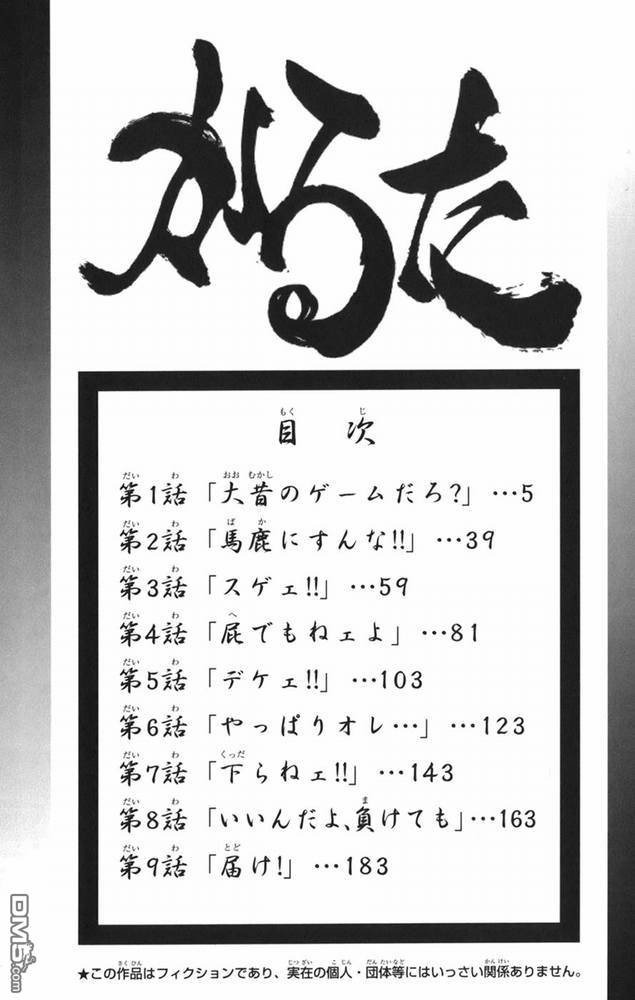 かるた
目次
第1話「大昔のゲームだろ?」…5
第2話「馬鹿にすんな!!」…39
第3話「スゲェ!!」…59
第4話「屁でもねェよ」…81
第5話「デケェ!!」…103
第6話「やっぱりオレ…」…123
第7話「下らねェ!!」…143
第8話「いいんだよ、負けても」…163
第9話「届け!」…183
★この作品はフィクションであり、実在の個人・団体等にはいっさい関係ありません。
DM5.com